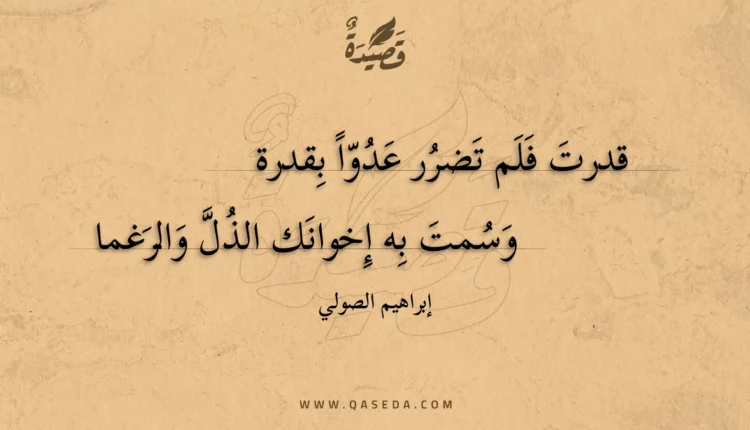 قَصِيْدَةٌ
قدرتَ فَلَم تَضرُر عَدُوّاً بِقدرة
وَسُمتَ بِه إِخوانَك الذُلَّ وَالرَغما
إبراهيم الصولي
WWW.QASEDA.COM